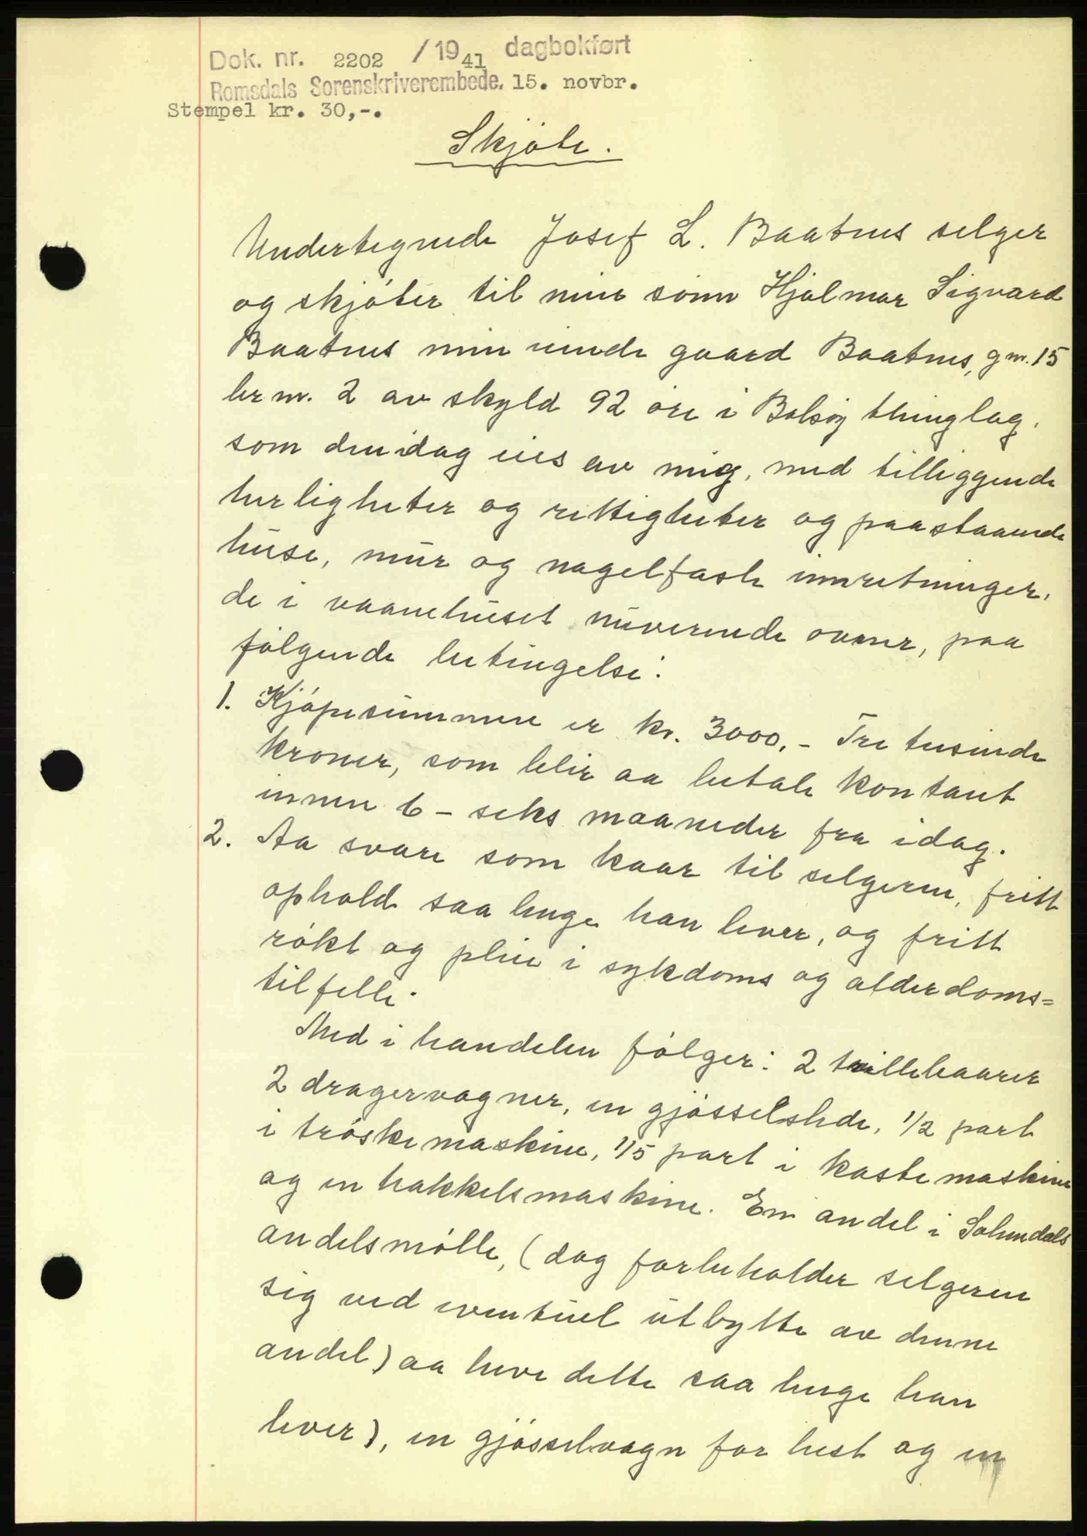 Dok. nr. 2202 / 1941 dagbokført
Romsdals Sorenskriverembede, 15. novbr.
Stempel kr. 30,-.
Skjøte.
Undertegnede Josef L. Baatnes selger
og skjøter til min sønn Hjalmar Sigvard
Baatnes min eiende gaard Baatnes, gnr. 15
br nr. 2 av skyld 92 øre i Bolsøy thinglag,
som den idag eies av mig, med tilliggende
herligheter og rettigheter og paastaaende
huse, mur og nagelfaste innretninger,
de i vaanehuset nuverende ovner, paa
følgende betingelse:
1. Kjøpesummen er kr. 3000,- Tre tusinde
kroner, som blir aa betale kontant
innen 6 - seks maaneder fra idag.
2. Aa svare som kaar til selgeren, fritt
ophold saa lenge han lever, og fritt
røkt og pleie i sykdoms og alderdoms=
tilfelle.
Med i handelen følger: 2 trillebaarer
2 dragervogner, en gjødselslede, 1/2 part
i trøskemaskine, 1/5 part i kastemaskine
og en hakkelsmaskine. En andel i
andelsmølle, (dog forbeholder selgeren
sig ved eventuel utbytte av denne
andel) aa heve dette saa lenge han
lever), en gjødselvogn for hest og en